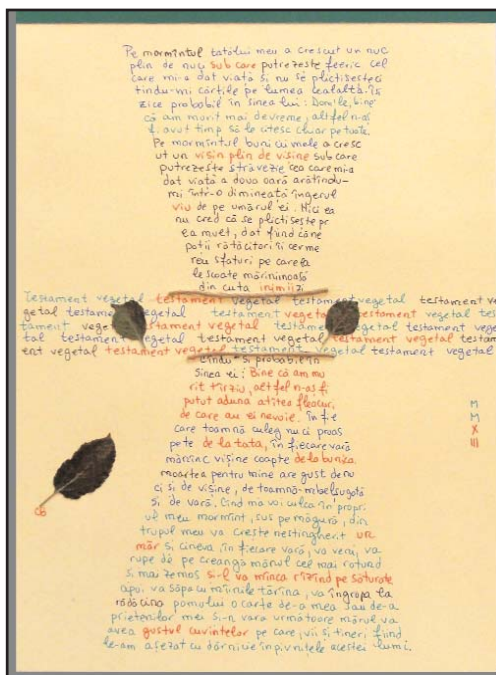 Pe mormîntul tatălui meu a crescut un nuc
plin de nuci sub care putrezește feeric cel
care mi-a dat viată si nu se plictisește ci
tindu-mi cărtile pe lumea cealaltă. Își
zice probabil în sinea lui: Dom'le, bine
că am murit mai devreme, altfel n-aș
fi avut timp să le citesc chiar pe toate.
Pe mormîntul bunicii mele a cresc
ut un vișin plin de vișine sub care
putrezește străvezie cea care mi-a
dat viată a doua oară arătîndu-
mi într-o dimineată îngerul
viu de pe umărul ei. Nici ea
nu cred că se plictisește pr
ea mult, dat fiind că ne
potii rătăcitori îi cer me
reu sfaturi pe care ea
le scoate mărinimoasă
din cuta inimii zi
testament vegetal testament vegetal testament vegetal testament ve
getal testament vegetal testament vegetal testament vegetal tes
tament vegetal testament vegetal testament vegetal testament vege
tal testament vegetal testament vegetal testament vegetal testam
ent vegetal testament vegetal testament vegetal testament vegetal
cîndu-si probabil în
sinea ei: Bine că am mu
rit tîrziu, altfel n-aș fi
putut aduna atîtea fleacuri
de care au ei nevoie. În fie
care toamnă culeg nuci proas
pete de la tata, în fiecare vară
mănînc vișine coapte de la bunica.
moartea pentru mine are gust de nu
ci si de vișine, de toamnă-mbelșugată
si de vară. Cînd mă voi culca în propri
ul meu mormînt, sus pe măgură, din
trupul meu va crește nestingherit un
măr si cineva, în fiecare vară, va veni, va
rupe de pe creangă mărul cel mai rotund
si mai zemos si-l va mînca rîzînd pe săturate
apoi, va săpa cu mîinile tărîna, va îngropa la
rădăcina pomului o carte de-a mea sau de-a
prietenilor mei si-n vara următoare mărul va
avea gustul cuvintelor pe care, vii si tineri fiind
le-am așezat cu dărnicie în pivnitele acestei lumi.
M
M
X
III
CB